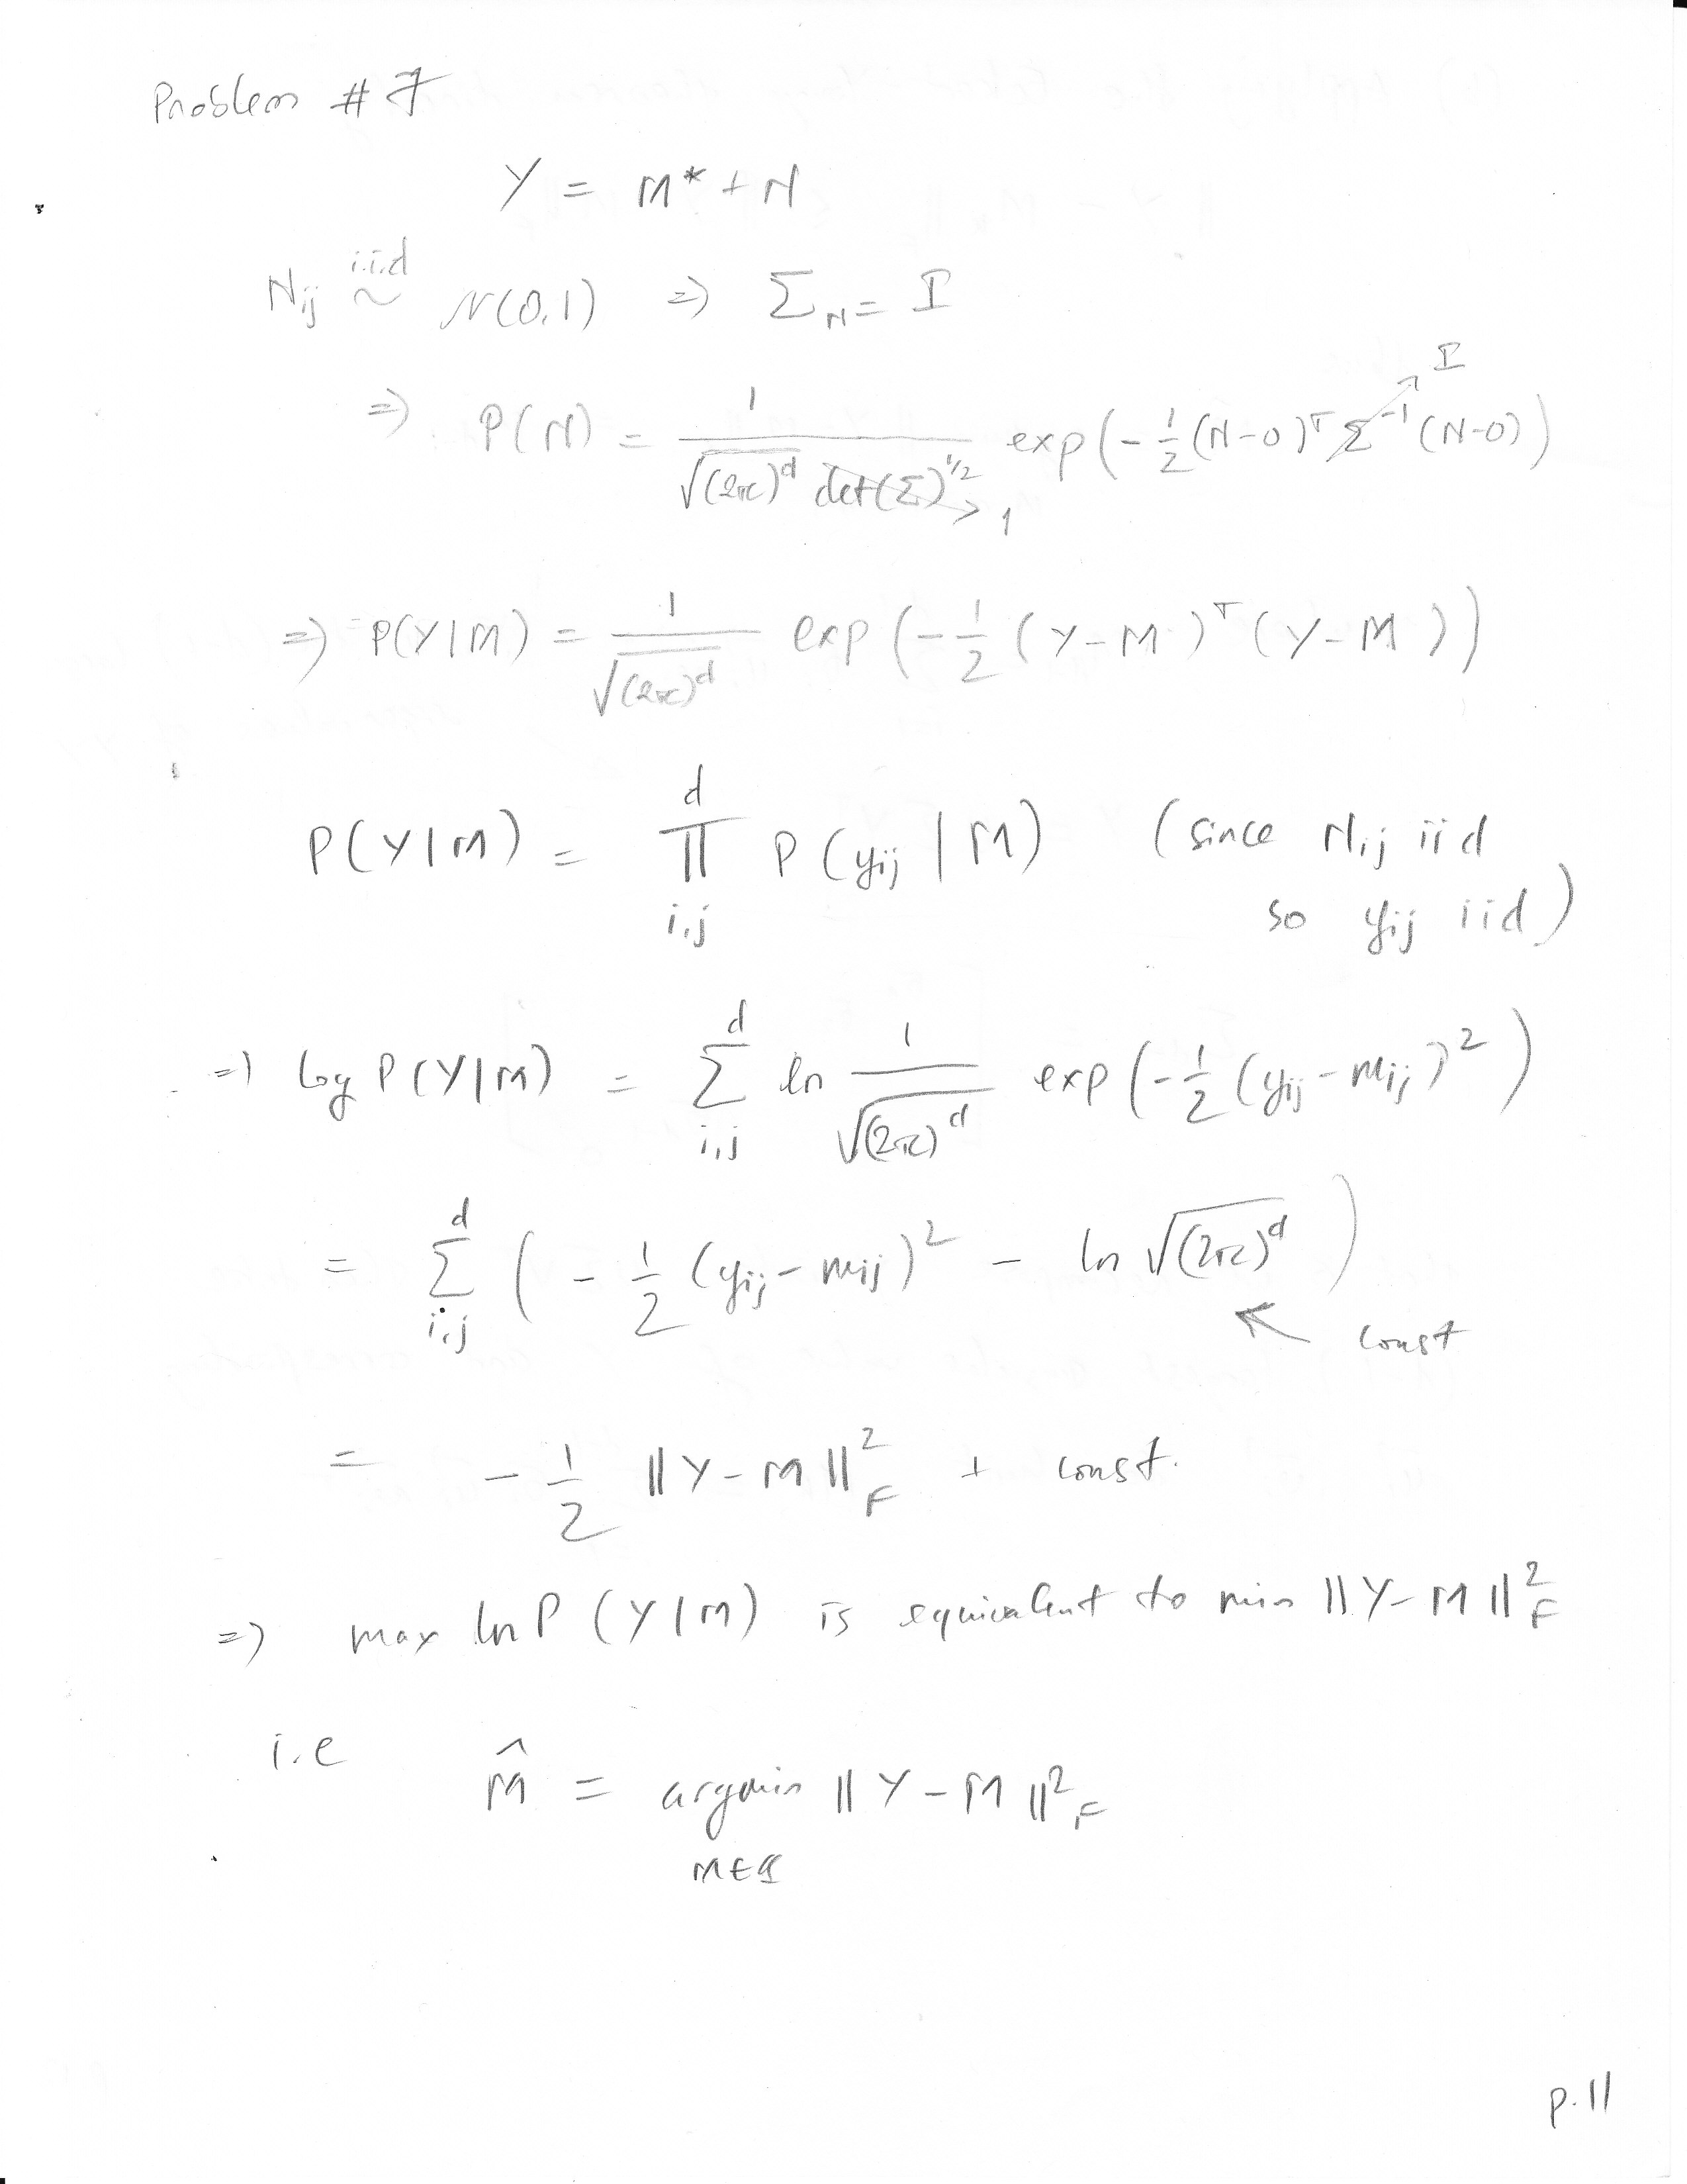 Problem # 7
Y = M* + N
N_ij i.i.d ~ N(0,1) => Σ_N = I
=> P(N) = 1 / √(2π)^d det(Σ)^1/2 → 1 exp(-1/2 (N-0)^T Σ^-1 (N-0)) → I
=> P(Y|M) = 1 / √(2π)^d exp(-1/2 (Y-M)^T (Y-M))
P(Y|M) = ∏_{i,j}^d P(y_ij | M) (since N_ij iid
so y_ij iid)
=> log P(Y|M) = Σ_{i,j}^d ln 1 / √(2π)^d exp(-1/2 (y_ij - m_ij)^2)
= Σ_{i,j}^d (-1/2 (y_ij - m_ij)^2 - ln √(2π)^d)
const
= -1/2 ||Y-M||_F^2 + const.
=> max ln P(Y|M) is equivalent to min ||Y-M||_F^2
i.e M̂ = argmin ||Y-M||^2_F
p.11